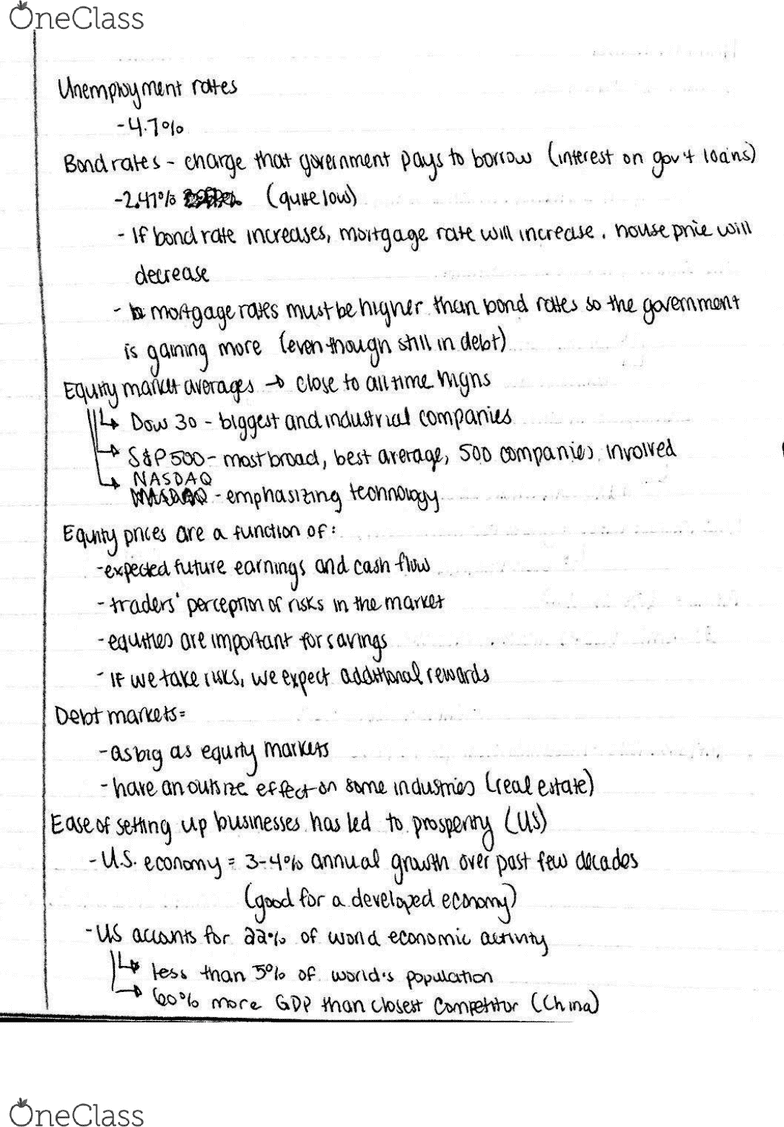 OneClass
Unemployment rates
-4.7%
Bond rates - charge that government pays to borrow (interest on gov't loans)
-2.47% (quite low)
- If bond rate increases, mortgage rate will increase. house price will
decrease
- mortgage rates must be higher than bond rates so the government
is gaining more (even though still in debt)
Equity market averages → close to all time highs
↳ Dow 30 - biggest and industrial companies
↳ S&P 500 - most broad, best average, 500 companies involved
↳ NASDAQ
- emphasizing technology
Equity prices are a function of:
-expected future earnings and cash flow
- traders' perception of risks in the market
-equities are important for savings
- If we take risks, we expect additional rewards
Debt markets=
-as big as equity markets
- have an outsize effect on some industries (real estate)
Ease of setting up businesses has led to prosperity (US)
- U.S. economy = 3-4% annual growth over past few decades
(good for a developed economy)
- US accounts for 22% of world economic activity
↳ less than 5% of world's population
→ 60% more GDP than closest competitor (China)
OneClass